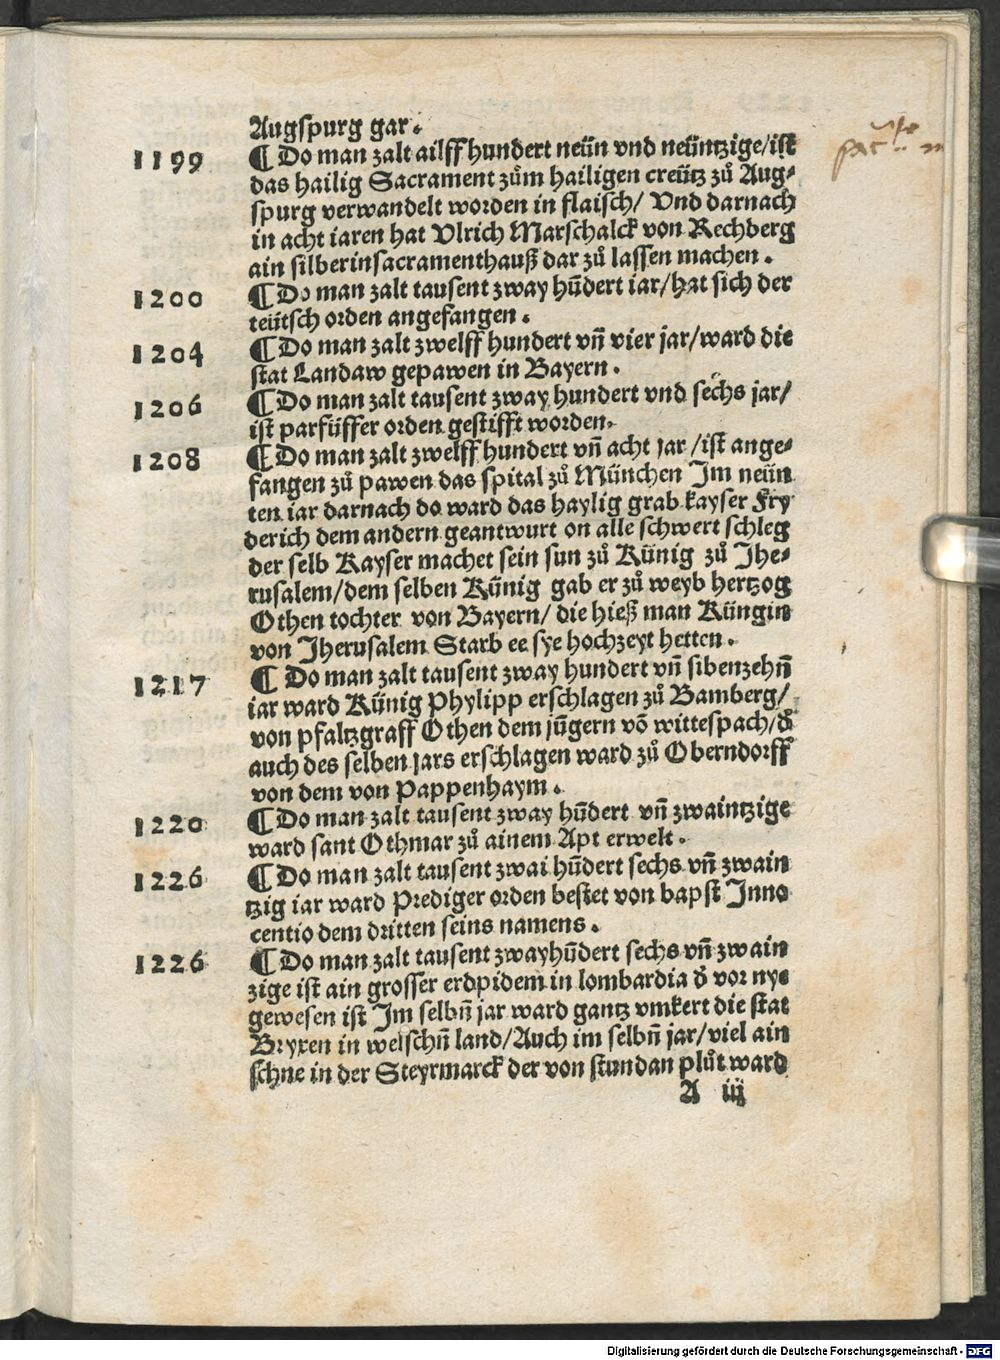 Augspurg gar.
1199 ¶ Do man zalt ailff hundert neün vnd neüntzige/ist
das hailig Sacrament zům hailigen creütz zů Aug⸗
spurg verwandelt worden in flaisch/ Vnd darnach
in acht iaren hat Vlrich Marschalck von Rechberg
ain silberinsacramenthauß dar zů lassen machen.
1200 ¶ Do man zalt tausent zway hūdert iar/hat sich der
teütsch orden angefangen.
1204 ¶ Do man zalt zwelff hundert vn̄ vier jar/ward die
stat Landaw gepawen in Bayern.
1206 ¶ Do man zalt tausent zway hundert vnd sechs jar/
ist parfüsser orden gestifft worden.
1208 ¶ Do man zalt zwelff hundert vn̄ acht jar /ist ange⸗
fangen zů pawen das spital zů München Im neün
ten iar darnach do ward das haylig grab kayser Fry
derich dem andern geantwurt on alle schwert schleg
der selb Kayser machet sein sun zů Künig zů Jhe⸗
rusalem/dem selben Künig gab er zů weyb hertzog
Othen tochter von Bayern/ die hieß man Küngin
von Jherusalem Starb ee sye hochzeyt hetten.
1217 ¶ Do man zalt tausent zway hundert vn̄ sibenzehn̄
iar ward Künig Phylipp erschlagen zů Bamberg/
von pfaltzgraff Othen dem jūgern vō wittespach/d̄
auch des selben jars erschlagen ward zů Oberndorff
von dem von Pappenhaym.
1220 ¶ Do man zalt tausent zway hūdert vn̄ zwaintzige
ward sant Othmar zů ainem Apt erwelt.
1226 ¶ Do man zalt tausent zwai hūdert sechs vn̄ zwain
tzig iar ward Prediger orden bestet von bapst Inno
centio dem dritten seins namens.
1226 ¶ Do man zalt tausent zwayhūdert sechs vn̄ zwain
zige ist ain grosser erdpidem in lombardia d̄ vor nye
gewesen ist Im selbn̄ jar ward gantz vmkert die stat
Bryxen in welschn̄ land/Auch im selbn̄ jar/viel ain
schne in der Steyrmarck der von stundan plůt ward
A iij
Digitalisierung gefördert durch die Deutsche Forschungsgemeinschaft - DFG